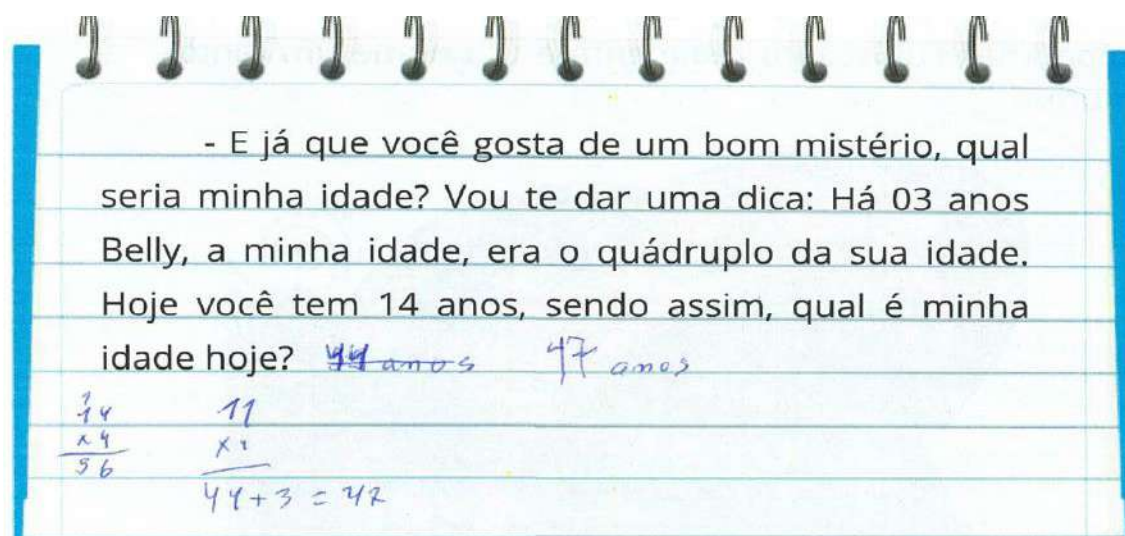 - E já que você gosta de um bom mistério, qual
seria minha idade? Vou te dar uma dica: Há 03 anos
Belly, a minha idade, era o quádruplo da sua idade.
Hoje você tem 14 anos, sendo assim, qual é minha
idade hoje? 44 anos 47 anos
14 11
x 4 x
56
44+3 = 47